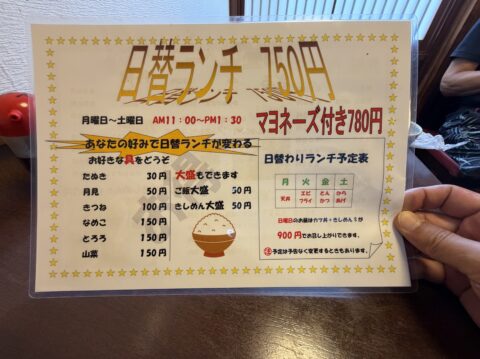 日替ランチ 750円
月曜日～土曜日 AM11：00～PM1：30
マヨネーズ付き780円
あなたの好みで日替ランチが変わる
お好きな具をどうぞ
たぬき 30円
月見 50円
きつね 100円
なめこ 150円
とろろ 150円
山菜 150円
大盛もできます
ご飯大盛 50円
きしめん大盛 50円
日替わりランチ予定表
月 火 金 土
天丼 エビフライ とんかつ からあげ
日曜日のお昼はカツ丼＋きしめんが
900円でお召し上がりできます。
予定は予告なく変更するときもあります。